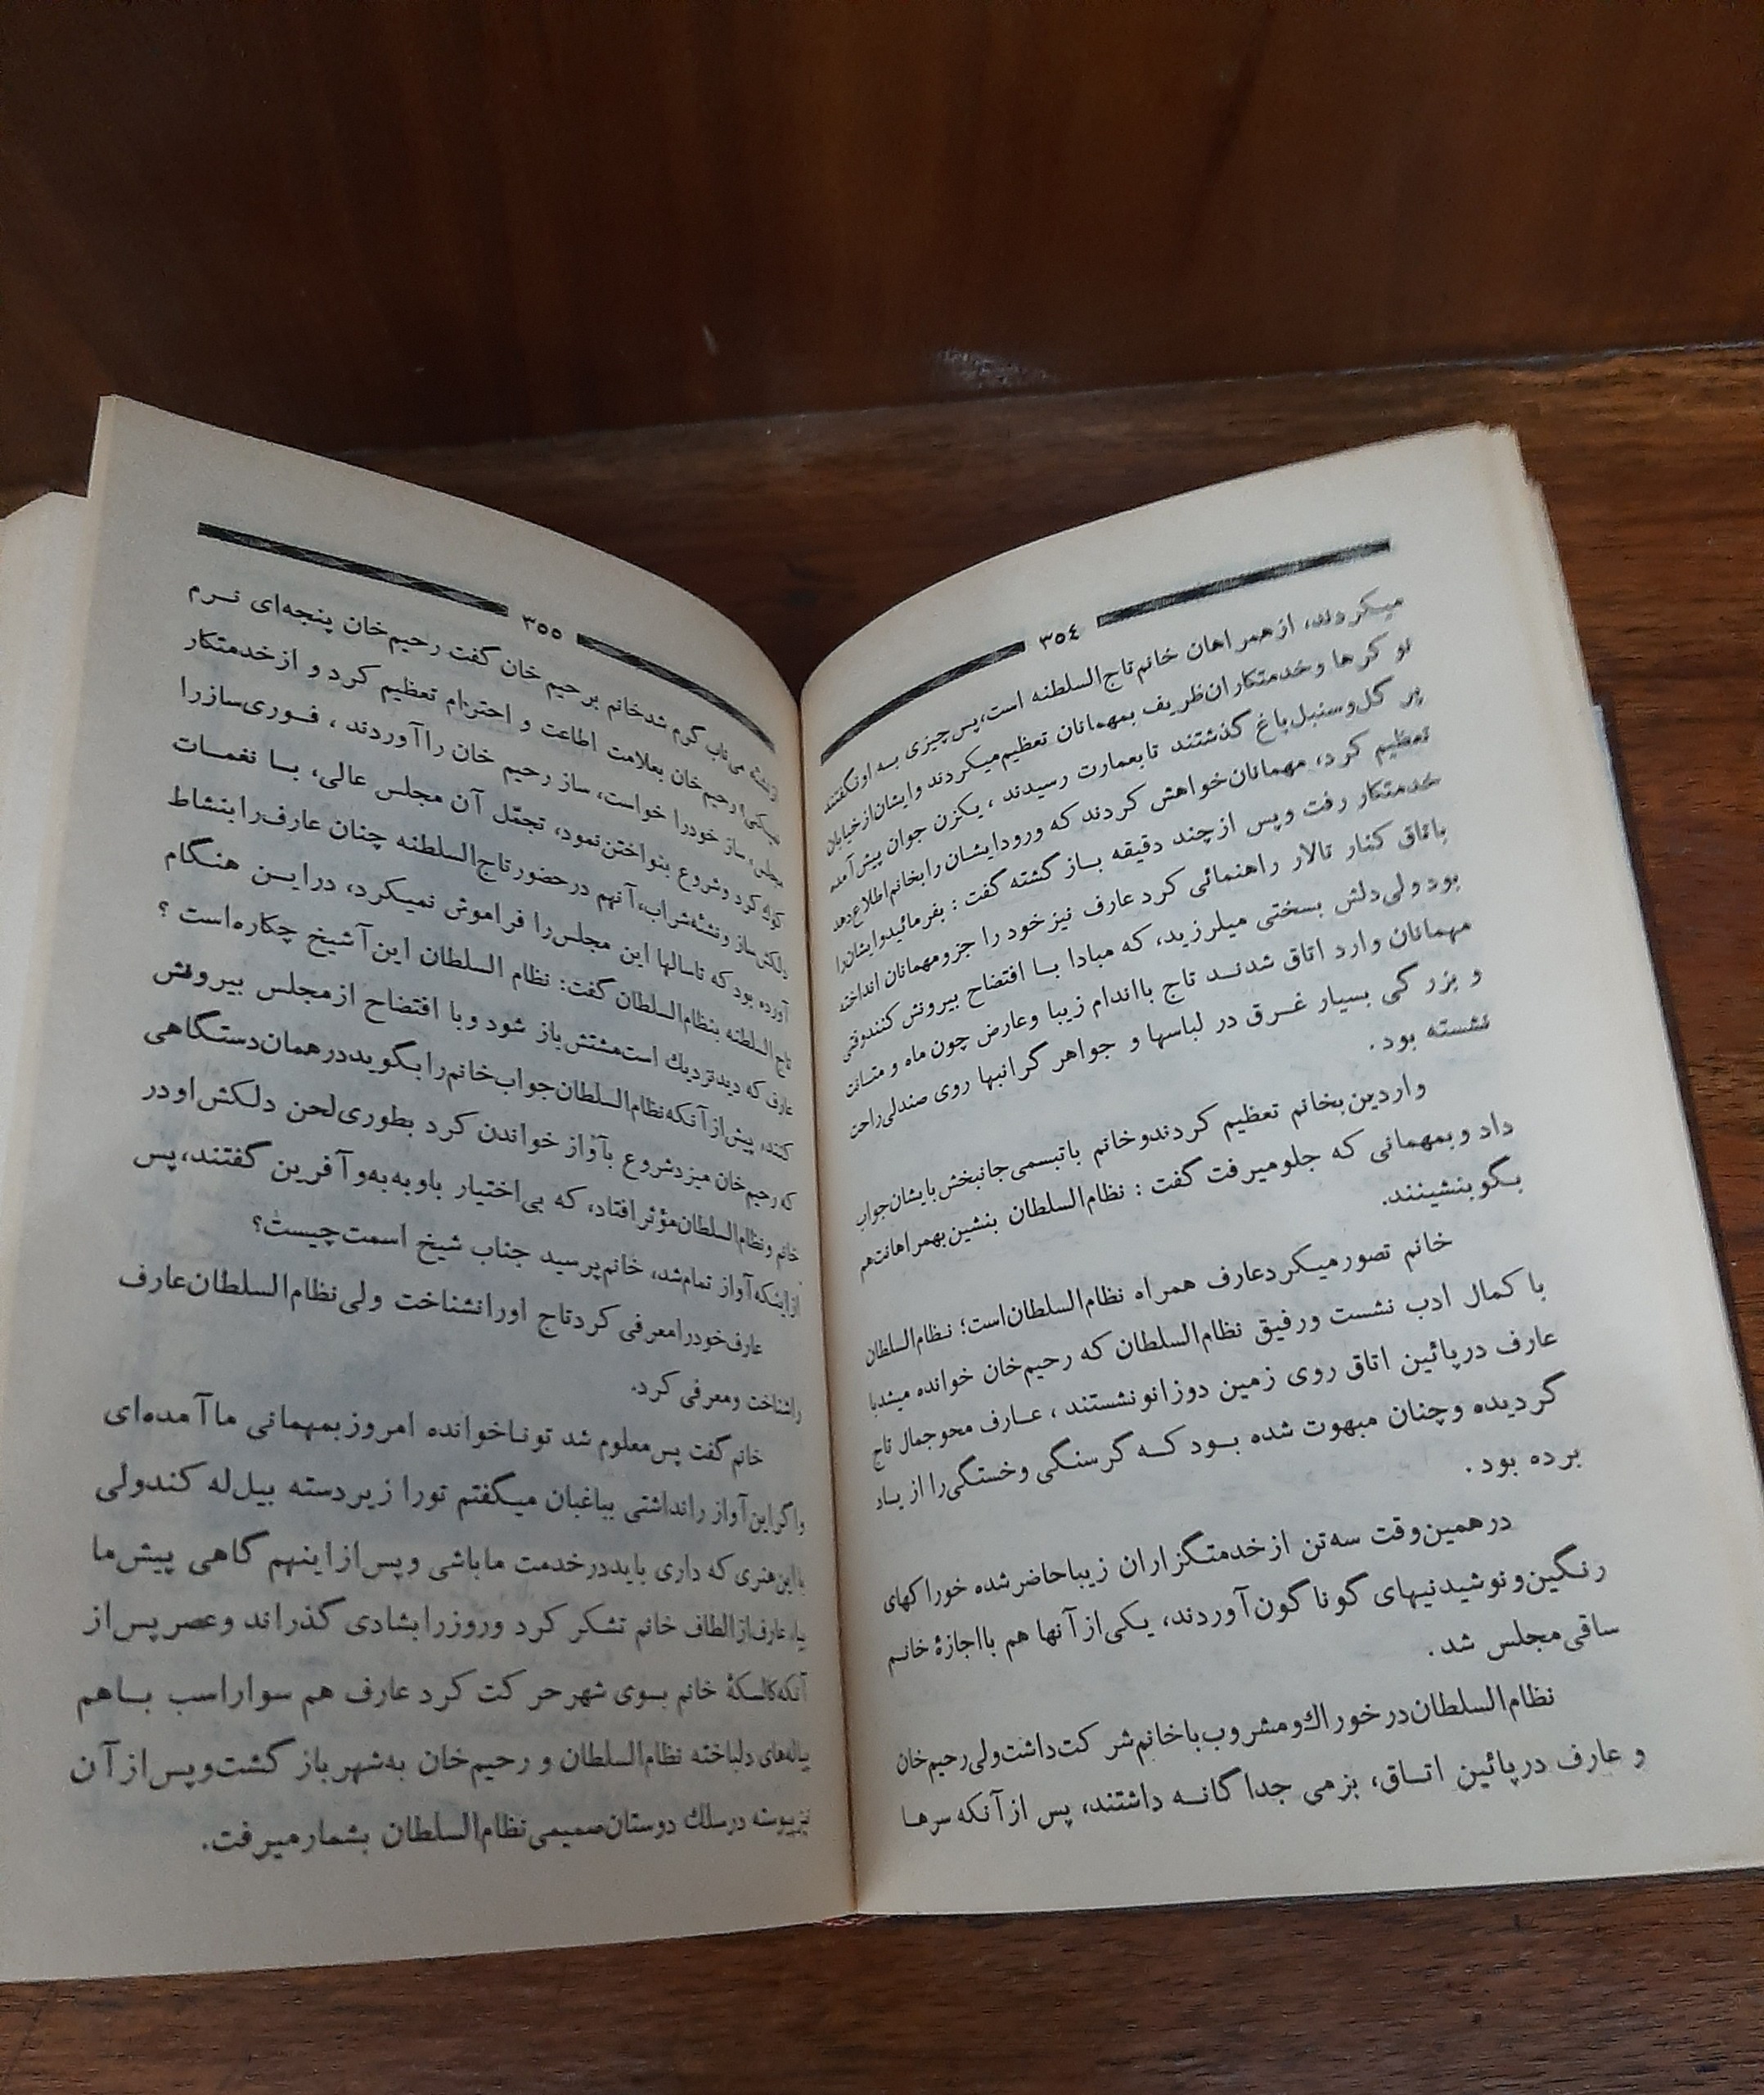 ۳۵٤
میکردند، ازهمراهان خانم‌تاج‌السلطنه است،پس‌چیزی بـه اونگفتند
نو کرها وخدمتکاران‌ظریف بمهمانان تعظیم‌میکردند وایشان‌ازخیابان
پر گل‌وسنبل‌باغ گذشتند تابعمارت رسیدند ، یکزن جوان پیش‌آمده
تعظیم کرد، مهمانان‌خواهش کردند که ورودایشان رابخانم‌اطلاع‌دهد
خدمتکار رفت وپس ازچند دقیقه بــاز گشته گفت : بفرمائیدوایشان‌را
باتاق کنار تالار راهنمائی کرد عارف نیزخود را جزومهمانان انداخته
بود ولی‌دلش بسختی میلرزید، که مبادا بــا افتضاح بیرونش کنندوقتی
مهمانان وارد اتاق شدنــد تاج بااندام زیبا وعارض چون‌ماه و متـانت
و بزرگی بسیار غــرق در لباسها و جواهر گرانبها روی صندلی‌راحتی
نشسته بود.
واردین‌بخانم تعظیم کردندوخانم باتبسمی‌جانبخش‌بایشان‌جواب
داد وبمهمانی که جلومیرفت گفت : نظام‌السلطان بنشین‌بهمراهانت‌هم
بـگوبنشینند.
خانم تصورمیـکردعارف همراه نظام‌السلطان‌است؛ نـظام‌السلطان
با کمال ادب نشست ورفیق نظام‌السلطان که رحیم‌خان خوانده میشدبا
عارف درپائین اتاق روی زمین دوزانونشستند ، عــارف محوجمال تاج
گردیده وچنان مبهوت شده بــود کــه گرسنـگی وخستـگی‌را از یـاد
برده بود .
درهمین‌وقت سه‌تن ازخدمتـگزاران زیباحاضرشده خوراکهای
رنـگین‌ونوشیدنیهای گوناگون‌آوردند، یـکی‌ازآنها هم بااجازهٔ خانـم
ساقی‌مجلس شد.
نظام‌السلطان‌درخوراك‌ومشروب‌باخانم‌شرکت‌داشت‌ولی‌رحیم‌خان
و عارف درپائین اتــاق، بزمی جداگانــه داشتند، پس ازآنـکه سرهـا
۳۵۵
ازنشئه می‌ناب گرم شدخانم برحیم خان گفت رحیم‌خان پنجه‌ای نــرم
نمیـکنی! رحیم‌خان بعلامت اطاعت و احترام تعظیم کرد و ازخدمتکار
مجلس، ساز خودرا خواست، ساز رحیم خان راآوردند ، فــوری‌سازرا
کوك کرد وشروع بنواختن‌نمود، تجمّل آن مجلس عالی، بــا نغمــات
دلکش‌ساز ونشئه‌شراب، آنهم درحضورتاج‌السلطنه چنان عارف‌رابنشاط
آورده بود که تاسالها این مجلس‌را فراموش نمیـکرد، درایــن هنـگام
تاج السلطنه بنظام‌السلطان گفت: نظام السلطان این‌آشیخ چکاره‌است ؟
عارف که دیدنزدیك است‌مشتش‌باز شود وبا افتضاح ازمجلس بیرونش
کنند، پیش‌ازآنـکه‌نظام‌السلطان‌جواب‌خانم‌رابـگویددرهمان‌دستـگاهی
که رحیم‌خان میزدشروع بآواز خواندن کرد بطوری‌لحن دلـکش‌اودر
خانم ونظام‌السلطان‌مؤثرافتاد، که بی‌اختیار باوبه‌به‌وآفرین گفتند،پس
ازاینکه‌آواز تمام‌شد، خانم‌پرسید جناب شیخ اسمت‌چیست؟
عارف‌خودرامعرفی کردتاج اورانشناخت ولی‌نظام‌السلطان‌عارف
راشناخت ومعرفی کرد.
خانم گفت پس‌معلوم شد تونـاخوانده امروزبمهمانی ماآمده‌ای
واگراین‌آواز رانداشتی بباغبان میـگفتم تورا زیردسته بیل‌له کندولی
بااین‌هنری که داری بایددرخدمت ماباشی وپس‌ازاینهم گاهی پیش‌ما
بیا، عارف‌ازالطاف خانم تشکر کرد وروزرابشادی گذراند وعصرپس‌از
آنکه‌کالسکهٔ خانم بــوی شهرحرکت کرد عارف هم سواراسب بــاهم
پیاله‌های دلباخته نظام‌السلطان و رحیم‌خان به‌شهرباز گشت‌وپس‌ازآن
نیزپیوسته درسلك دوستان‌صمیمی‌نظام‌السلطان بشمارمیرفت.